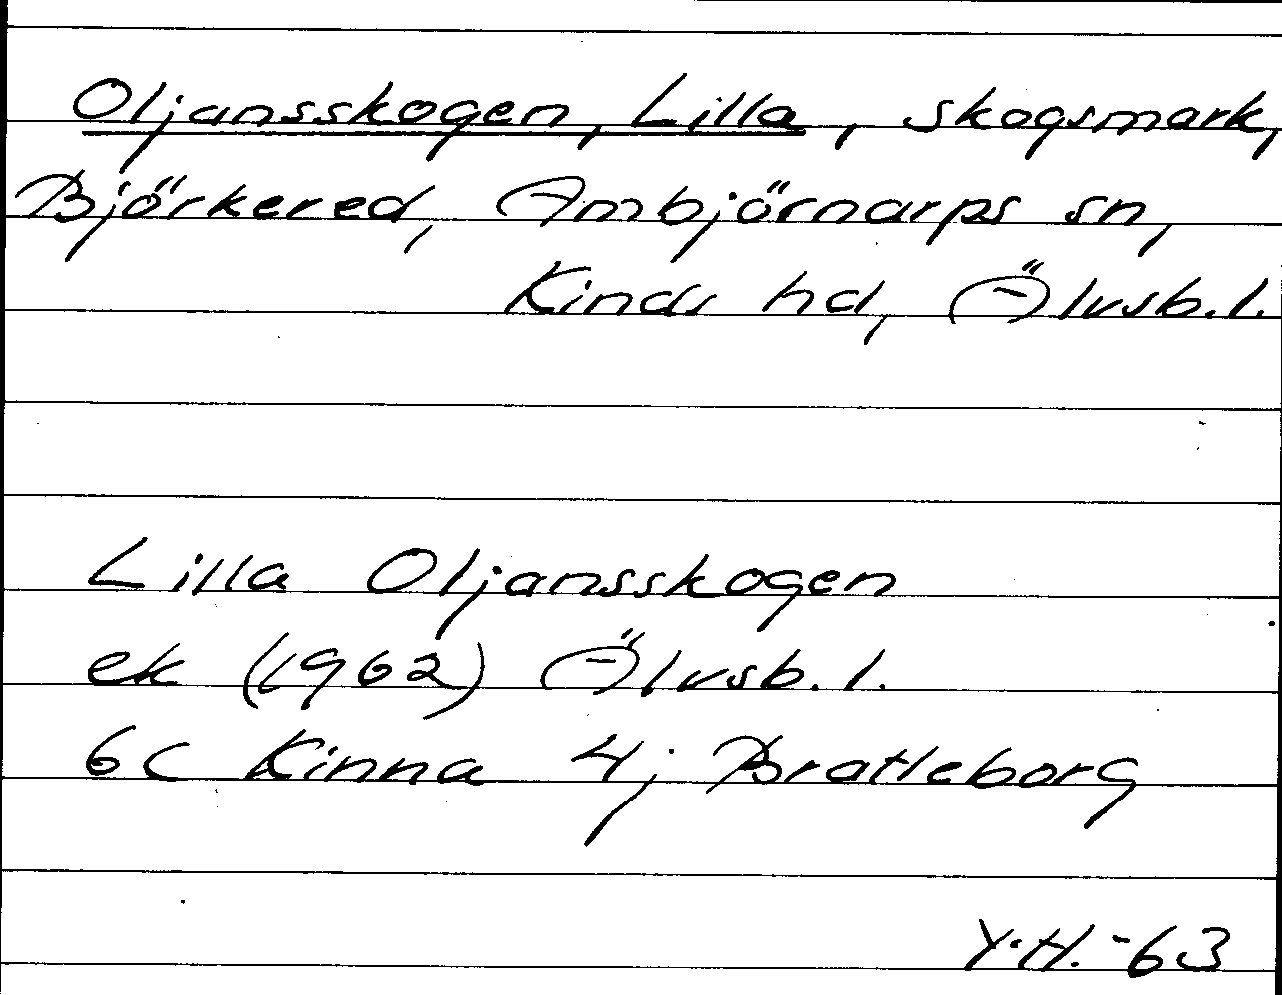 Oljansskogen, Lilla, skogsmark,
Björkered, Ambjörnarps sn,
Kinds hd, Älvsb.l.
Lilla Oljansskogen
ek (1962) Älvsb.l.
6c Kinna 4j Brattleborg
Y.H. -63